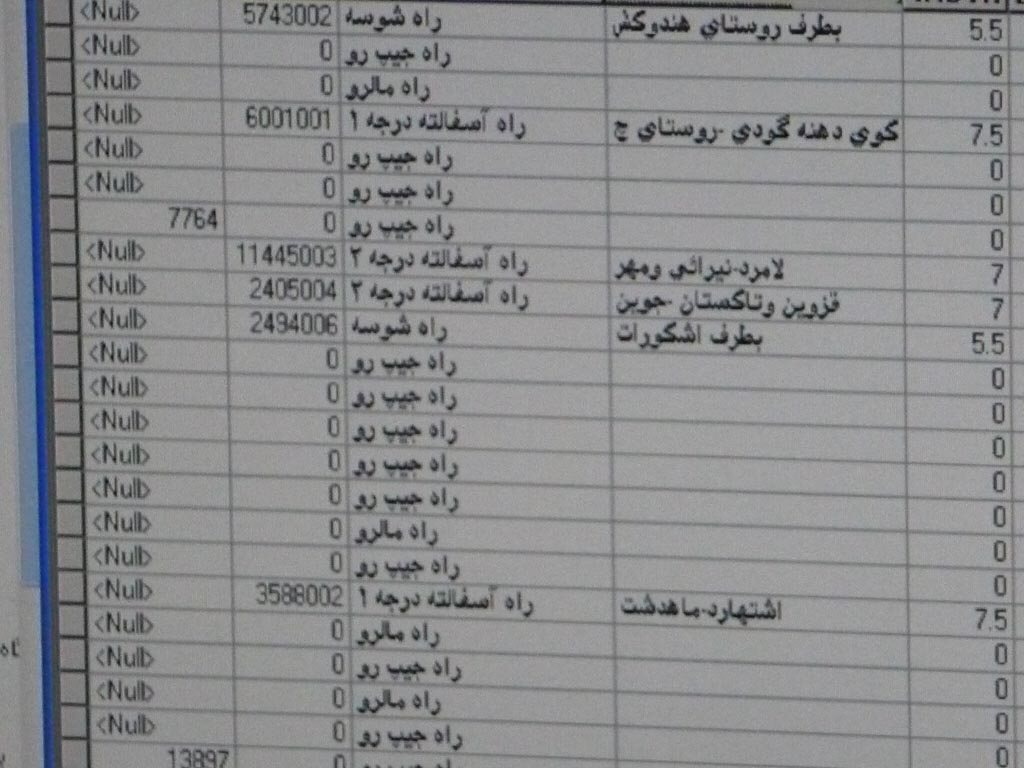 <Null> 5743002 راه شوسه بطرف روستاي هندوکش 5.5
<Null> 0 راه جيپ رو 0
<Null> 0 راه مالرو 0
<Null> 6001001 راه آسفالته درجه ۱ کوي دهنه گودي -روستاي چ 7.5
<Null> 0 راه جيپ رو 0
<Null> 0 راه جيپ رو 0
7764 0 راه جيپ رو 0
<Null> 11445003 راه آسفالته درجه ۲ لامرد-نيرائي ومهر 7
<Null> 2405004 راه آسفالته درجه ۲ قزوين وتاکستان -جوين 7
<Null> 2494006 راه شوسه بطرف اشکورات 5.5
<Null> 0 راه جيپ رو 0
<Null> 0 راه جيپ رو 0
<Null> 0 راه جيپ رو 0
<Null> 0 راه جيپ رو 0
<Null> 0 راه جيپ رو 0
<Null> 0 راه مالرو 0
<Null> 0 راه جيپ رو 0
<Null> 3588002 راه آسفالته درجه ۱ اشتهارد-ماهدشت 7.5
<Null> 0 راه مالرو 0
<Null> 0 راه جيپ رو 0
<Null> 0 راه مالرو 0
<Null> 0 راه جيپ رو 0
13897 0 راه جيپ رو 0